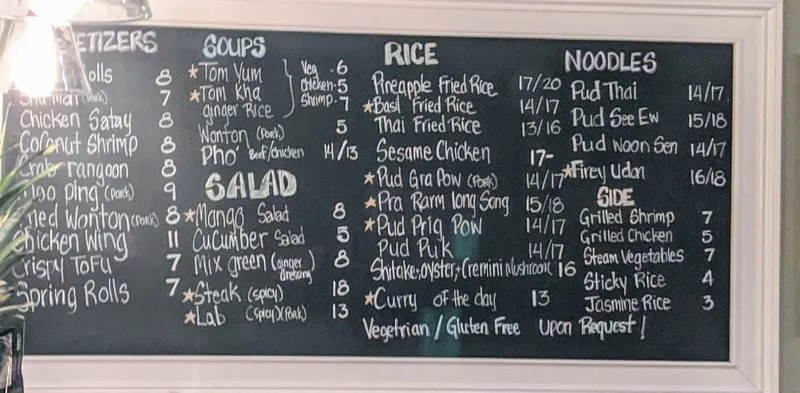 ETIZERS
olls 8
Shu mai (Pork) 7
Chicken Satay 8
Coconut Shrimp 8
Crab rangoon 8
Moo Ping (Pork) 9
Fried Wonton (Pork) 8
Chicken Wing 11
Crispy Tofu 7
Spring Rolls 7
SOUPS
Tom Yum
Tom Kha
ginger Rice
Veg - 6
Chicken - 5
Shrimp - 7
Wonton (Pork) 5
Pho Beef/Chicken 14/13
SALAD
Mango Salad 8
Cucumber Salad 5
Mix green (ginger dressing) 8
Steak (spicy) 18
Lab (Spicy)(Pork) 13
RICE
Pineapple Fried Rice 17/20
Basil Fried Rice 14/17
Thai Fried Rice 13/16
Sesame Chicken 17-
Pud Gra Pow (Pork) 14/17
Pra Rarm long Song 15/18
Pud Priq Pow 14/17
Pud Puk 14/17
Shitake+oyster+Cremini Mushroom 16
Curry of the day 13
Vegetrian / Gluten Free upon Request!
NOODLES
Pud Thai 14/17
Pud See Ew 15/18
Pud Woon Sen 14/17
Firey Udon 16/18
SIDE
Grilled Shrimp 7
Grilled Chicken 5
Steam Vegetables 7
Sticky Rice 4
Jasmine Rice 3